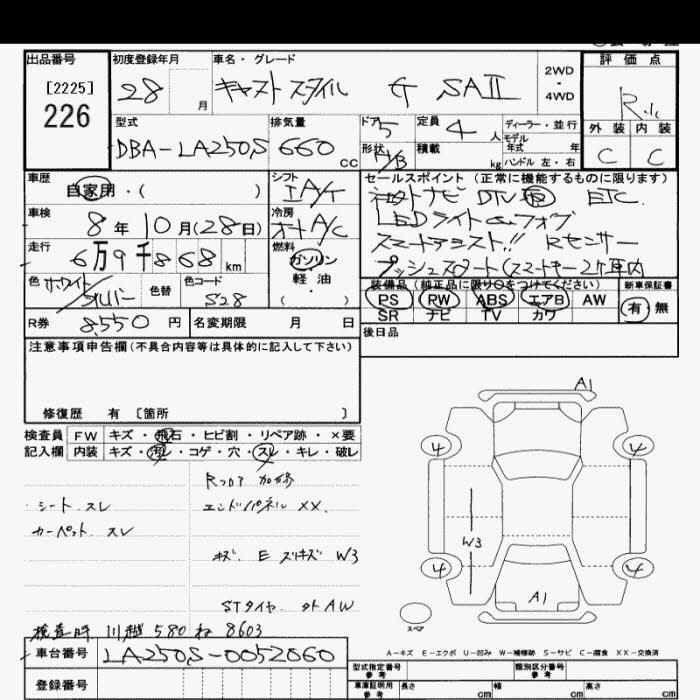 出品番号 初度登録年月 車名・グレード 評価点
[2225] 28 月 キャスト スタイル G SAⅡ 2WD・4WD
226 R
型式 排気量 ドア 5 定員 4 人 ディーラー・並行 外装 内装
DBA-LA250S 660 cc 形状 積載 kg モデル年式 年 ハンドル 左・右 C C
車歴 シフト セールスポイント (正常に機能するものに限ります)
自家用・( ) IA/T 社外ナビ DTV ETC
車検 8年10月(28日) 冷房 オートA/C LEDライト&フォグ
走行 6万9千868km 燃料 ガソリン スマートアシスト!! Rモンサー
軽油 プッシュスタート(スマートキー2ケ車内
色 ホワイト/シルバー 色替 色コード S28 ( ) 装備品(純正品に限り〇をつけてください) 新車保証書
PS PW ABS エアB AW 有・無
SR ナビ TV カワ
R券 8550円 名変期限 月 日 後日品
注意事項申告欄(不具合内容等は具体的に記入して下さい)
修復歴 有 [箇所 ]
検査員 FW キズ・飛石・ヒビ割・リペア跡・×要
記入欄 内装 キズ・汚レ・コゲ・穴・スレ・キレ・破レ
Rフロア 加修
シート. スレ エンドパネル XX.
カーペット. スレ
キズ. E スリキズ W3
STタイヤ. 外AW
検査時 川越 580 ね 8603
車台番号 LA250S-0052060
登録番号
A1
4 4
W3
4 4
A1
スペア
A-キズ E-エクボ U-凹み W-補修跡 S-サビ C-腐食 XX-交換済
型式指定番号 参考 類別区分番号 参考
車庫証明用 参考 長さ cm 幅 cm 高さ cm